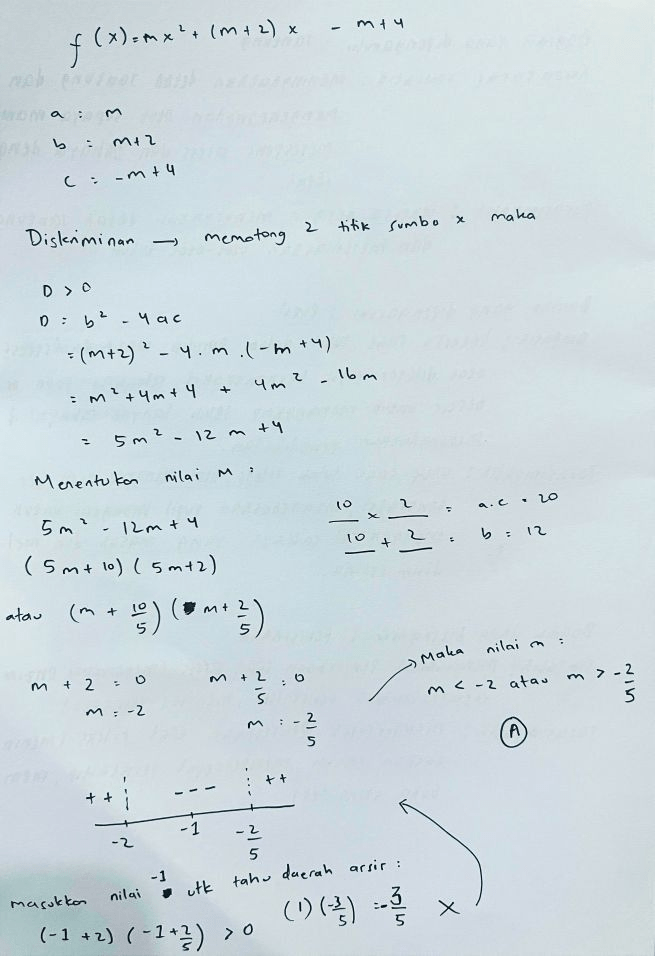 f(x) = mx² + (m+2) x - m+4
a : m
b : m+2
c : -m+4
Diskriminan → memotong 2 titik sumbo x maka
D > 0
D = b² - 4ac
= (m+2)² - 4 . m . (-m +4)
= m² + 4m + 4 + 4m² - 16m
= 5m² - 12 m +4
Menentukan nilai M :
5m² - 12m + 4
(5m + 10) (5m+2)
10 × 2 = a.c = 20
10 + 2 = b = 12
atau (m + 10/5) (m + 2/5)
m + 2 = 0
m = -2
m + 2/5 = 0
m = -2/5
Maka nilai m :
m < -2 atau m > -2/5
A
+ + - - - + +
-2 -1 -2/5
masukkan nilai -1 utk tahu daerah arsir :
(-1 +2) (-1 + 2/5) > 0
(1) (-3/5) = -3/5 ×